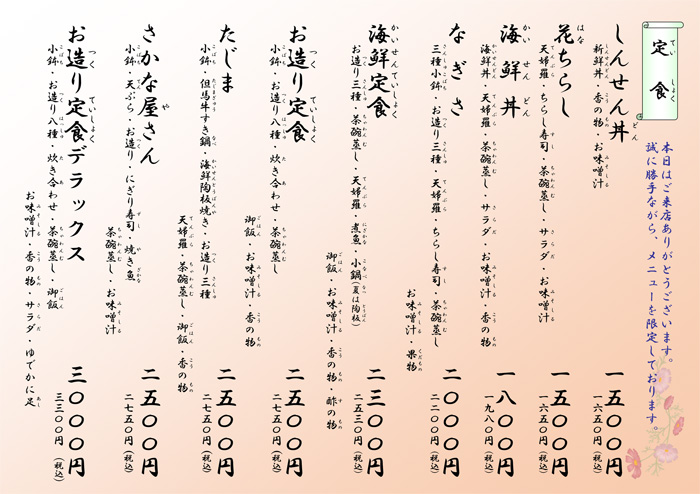 定食
本日はご来店ありがとうございます。
誠に勝手ながら、メニューを限定しております。
しんせん丼
新鮮丼・香の物・お味噌汁
一五〇〇円
一六五〇円(税込)
花ちらし
天婦羅・ちらし寿司・茶碗蒸し・サラダ・お味噌汁
一五〇〇円
一六五〇円(税込)
海鮮丼
海鮮丼・天婦羅・茶碗蒸し・サラダ・お味噌汁・香の物
一八〇〇円
一九八〇円(税込)
なぎさ
三種小鉢・お造り三種・天婦羅・ちらし寿司・茶碗蒸し
お味噌汁・果物
二〇〇〇円
二二〇〇円(税込)
海鮮定食
お造り三種・茶碗蒸し・天婦羅・煮魚・小鍋(夏は陶板)
御飯・お味噌汁・香の物・酢の物
二三〇〇円
二五三〇円(税込)
お造り定食
小鉢・お造り八種・炊き合わせ・茶碗蒸し
御飯・お味噌汁・香の物
二五〇〇円
二七五〇円(税込)
たじま
小鉢・但馬牛すき鍋・海鮮陶板焼き・お造り三種
天婦羅・茶碗蒸し・御飯・香の物
二五〇〇円
二七五〇円(税込)
さかな屋さん
小鉢・天ぷら・お造り・にぎり寿司・焼き魚
茶碗蒸し・お味噌汁
二五〇〇円
二七五〇円(税込)
お造り定食デラックス
小鉢・お造り八種・炊き合わせ・茶碗蒸し・御飯
お味噌汁・香の物・サラダ・ゆでかに足
三〇〇〇円
三三〇〇円(税込)